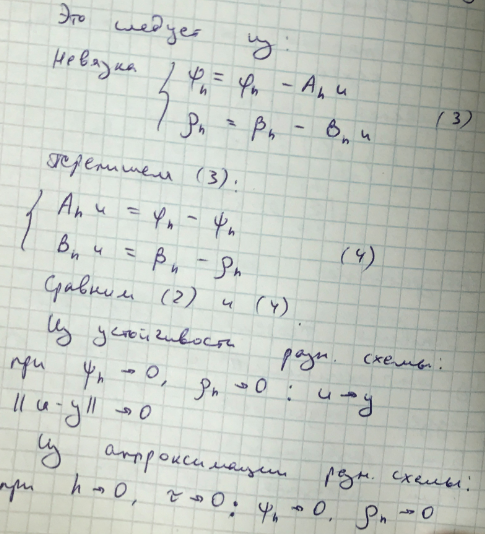 Это следует из:
Невязка { ψₕ = φₕ - Aₕ u
ρₕ = βₕ - Bₕ u (3)
Перепишем (3):
{ Aₕ u = φₕ - ψₕ
Bₕ u = βₕ - ρₕ (4)
Сравним (2) и (4).
Из устойчивости разн. схемы:
при ψₕ → 0, ρₕ → 0 : u → y
||u - y|| → 0
Из аппроксимации разн. схемы:
при h → 0, τ → 0 : ψₕ → 0, ρₕ → 0